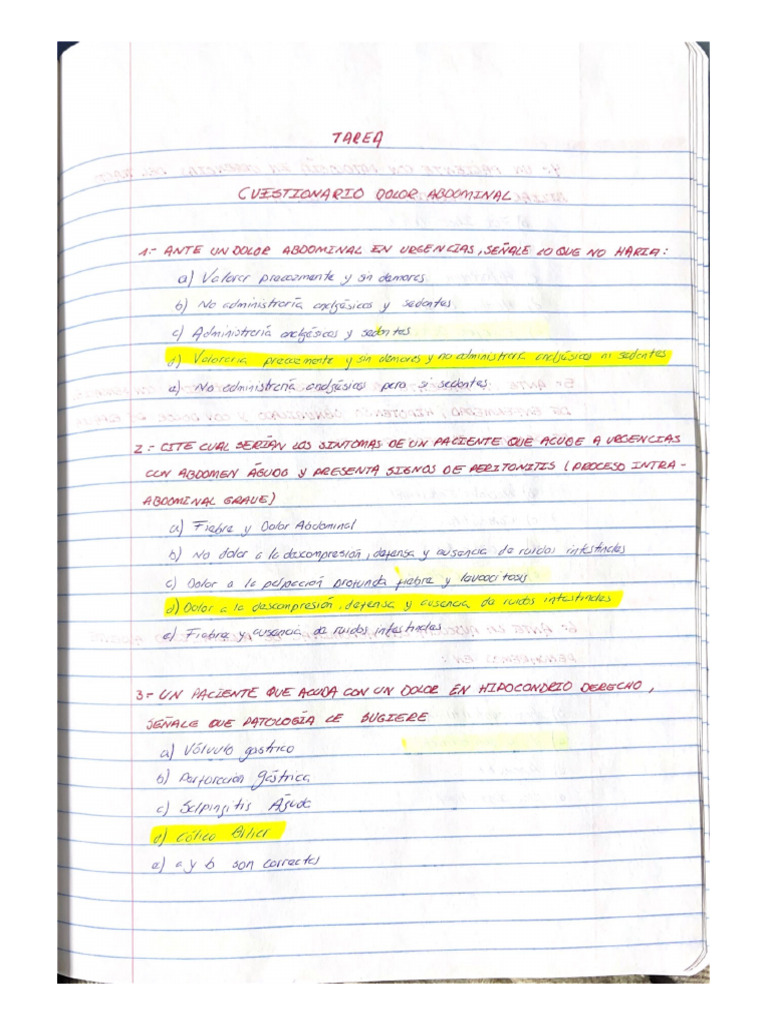 TAREA
CUESTIONARIO DOLOR ABDOMINAL
1.- ANTE UN DOLOR ABDOMINAL EN URGENCIAS, SEÑALE LO QUE NO HARIA:
a) Valorar precozmente y sin demoras
b) No administraría analgésicos y sedantes
c) Administraría analgésicos y sedantes
d) Valoraria precozmente y sin demoras y no administraria analgésicos ni sedantes
e) No administraría analgésicos pero si sedantes.
2.- CITE CUAL SERÍAN LOS SINTOMAS DE UN PACIENTE QUE ACUDE A URGENCIAS
CON ABDOMEN ÁGUDO Y PRESENTA SIGNOS DE PERITONITIS (PROCESO INTRA-
ABDOMINAL GRAVE)
a) Fiebre y Dolor Abdominal
b) No dolor a la descompresión, defensa y ausencia de ruidos intestinales
c) Dolor a la palpación profunda fiebre y leucocitosis
d) Dolor a la descompresión, defensa y ausencia de ruidos intestinales
e) Fiebre y ausencia de ruidos intestinales
3.- UN PACIENTE QUE ACUDA CON UN DOLOR EN HIPOCONDRIO DERECHO,
SEÑALE QUE PATOLOGÍA LE SUGIERE
a) Vólvulo gastrico
b) Perforación Gástrica
c) Salpingitis Águda
d) Cólico Biliar
e) a y b son correctas